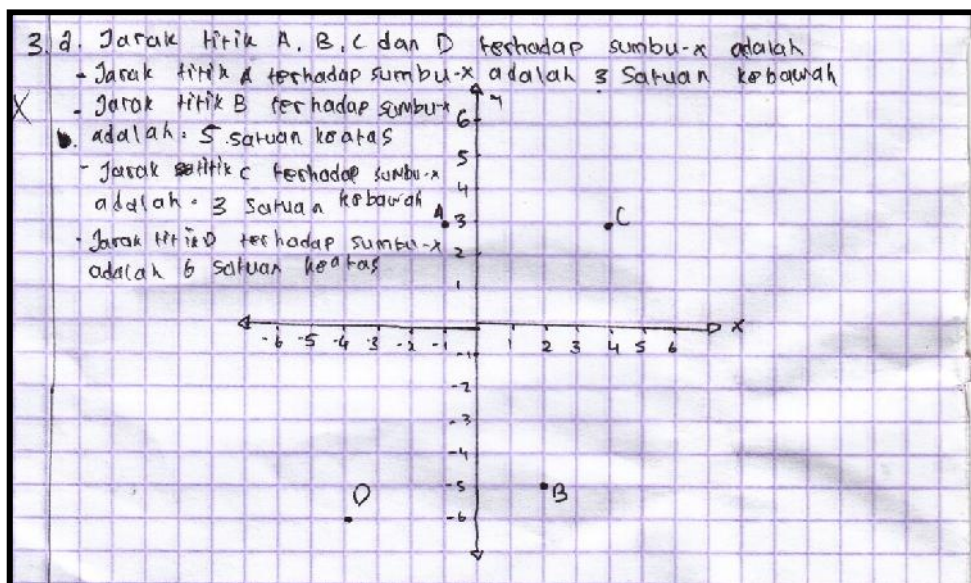 3. a. Jarak titik A, B, C dan D terhadap sumbu-x adalah
- Jarak titik A terhadap sumbu-x adalah 3 Satuan kebawah
X - Jarak titik B terhadap sumbu-x
b. adalah = 5 satuan keatas
- Jarak titik C terhadap sumbu-x
adalah = 3 satuan kebawah
- Jarak titik D terhadap sumbu-x
adalah 6 satuan keatas
6
5
4
A 3 C
2
1
X
-6 -5 -4 -3 -2 -1 1 2 3 4 5 6
-1
-2
-3
-4
D -5 B
-6